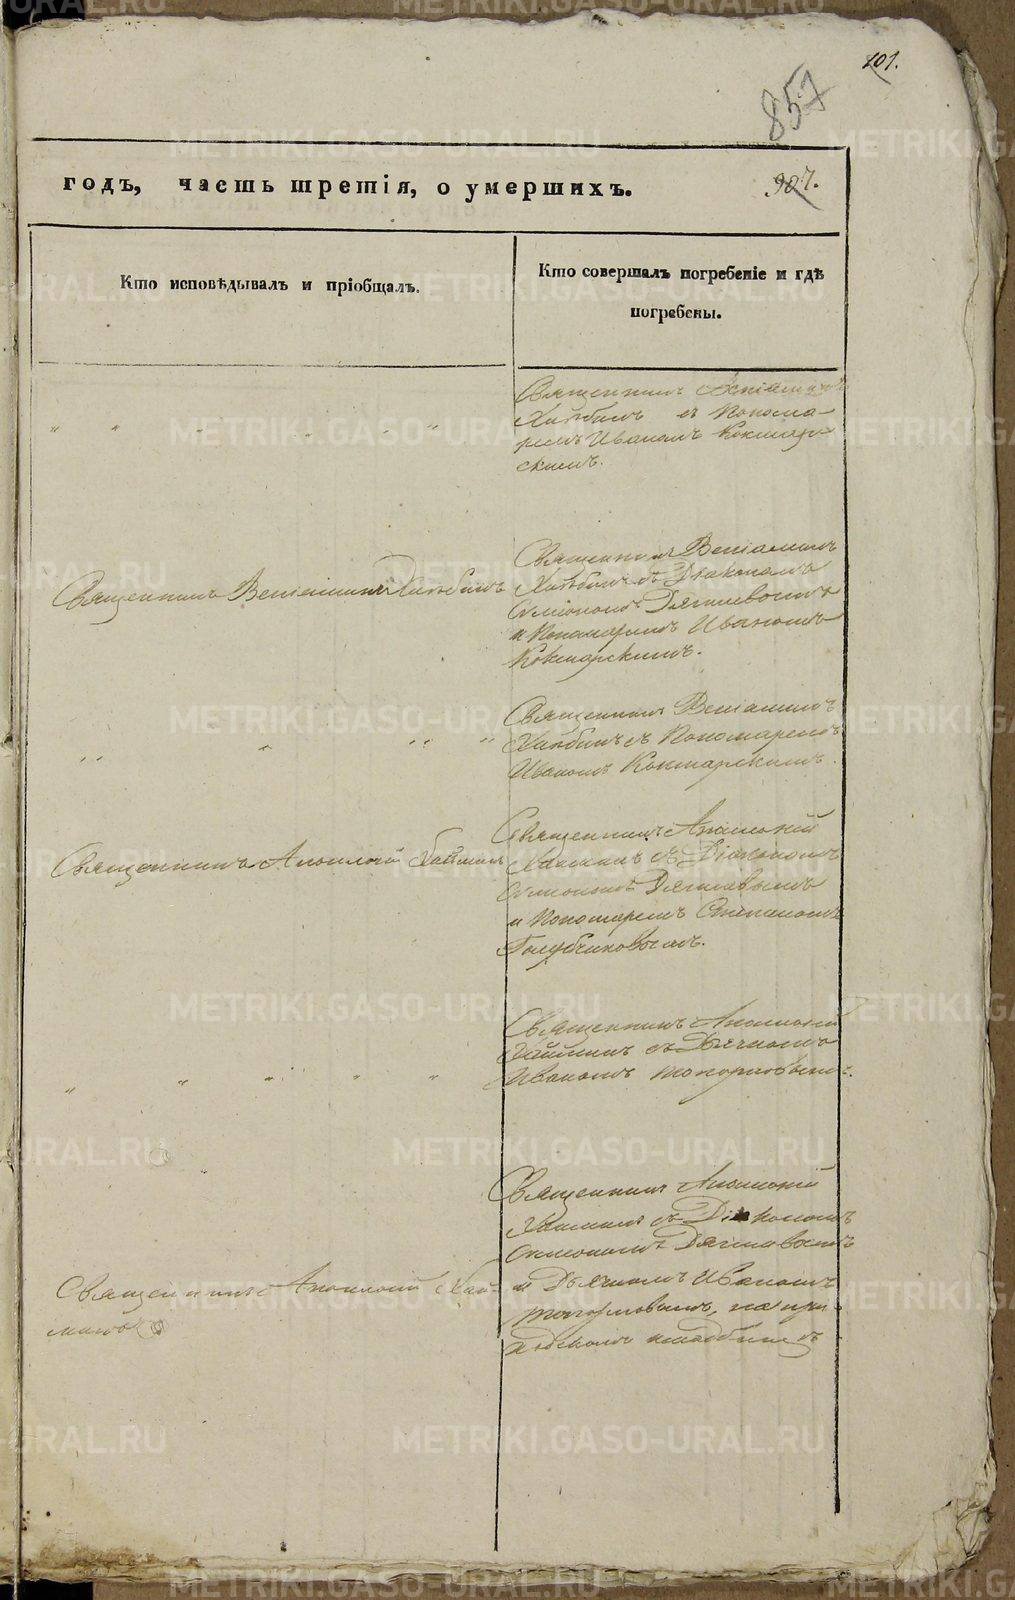 101.
857
907.
годъ, часть третія, о умершихъ.
Кто исповѣдывалъ и пріобщалъ.
Кто совершалъ погребеніе и гдѣ
погребены.
Священникъ Веніаминъ
Хлѣбинъ съ Понома-
ремъ Иваномъ Кокшар-
скимъ.
Священникъ Веніаминъ Хлѣбинъ
Священникъ Веніаминъ
Хлѣбинъ съ Діакономъ
Симеономъ Дягилевымъ
и Пономаремъ Иваномъ
Кокшарскимъ.
Священникъ Веніаминъ
Хлѣбинъ съ Пономаремъ
Иваномъ Кокшарскимъ.
Священникъ Аполлоній
Священникъ Аполлоній
съ Діакономъ
Симеономъ Дягилевымъ
и Пономаремъ Степаномъ
Голубчиковымъ.
Священникъ Аполлоній
съ Дьячкомъ
Иваномъ Топорковымъ.
Священникъ Аполлоній
Священникъ Аполлоній
съ Діакономъ
Симеономъ Дягилевымъ
и Дьячкомъ Иваномъ
Топорковымъ, на при-
ходскомъ кладбищѣ
METRIKI.GASO-URAL.RU